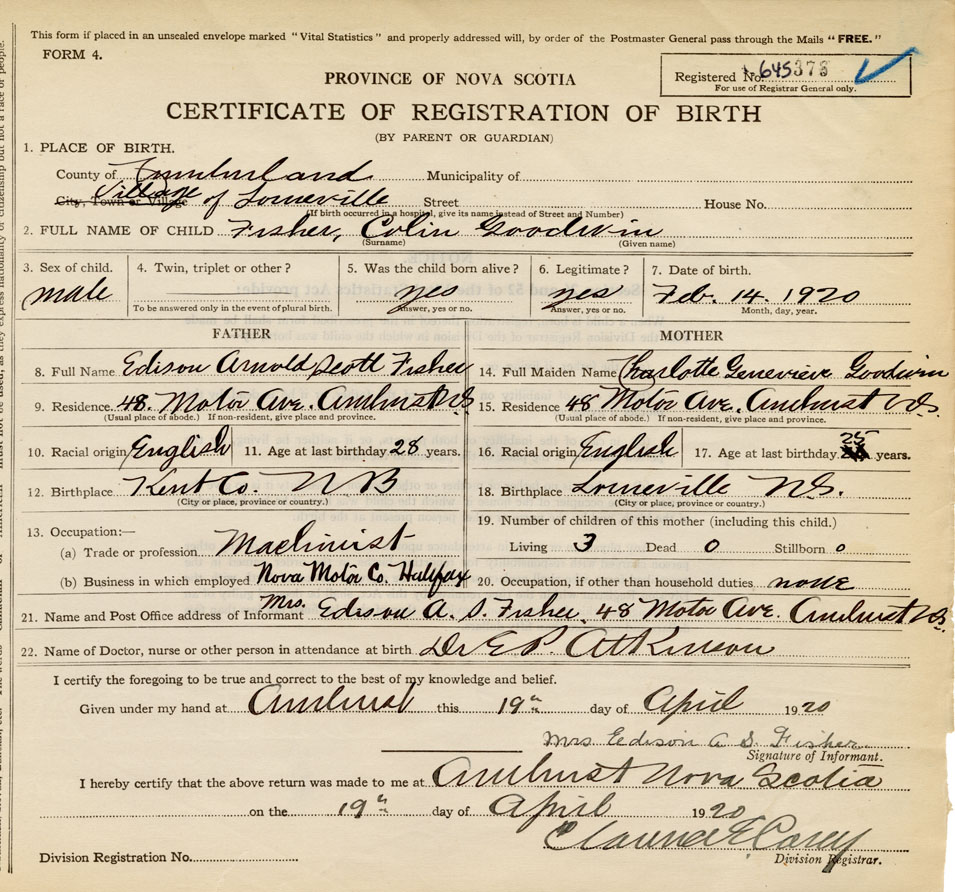 This form if placed in an unsealed envelope marked "Vital Statistics" and properly addressed will, by order of the Postmaster General pass through the Mails "FREE."
FORM 4.
Registered No. 645378
For use of Registrar General only.
PROVINCE OF NOVA SCOTIA
CERTIFICATE OF REGISTRATION OF BIRTH
(BY PARENT OR GUARDIAN)
1. PLACE OF BIRTH.
County of Cumberland Municipality of
City, Town or Village Village of Lorneville Street House No.
(If birth occurred in a hospital, give its name instead of Street and Number)
2. FULL NAME OF CHILD Fisher, Colin Goodwin
(Surname) (Given name)
3. Sex of child. 4. Twin, triplet or other? 5. Was the child born alive? 6. Legitimate? 7. Date of birth.
male yes yes Feb. 14. 1920
To be answered only in the event of plural birth. Answer, yes or no. Answer, yes or no. Month, day, year.
FATHER MOTHER
8. Full Name Edison Arnold Scott Fisher 14. Full Maiden Name Charlotte Genevieve Goodwin
9. Residence 48. Motor Ave. Amherst N.S. 15. Residence 48 Motor Ave. Amherst N.S.
(Usual place of abode.) If non-resident, give place and province. (Usual place of abode.) If non-resident, give place and province.
10. Racial origin English 11. Age at last birthday 28 years. 16. Racial origin English 17. Age at last birthday 25 years.
12. Birthplace Kent Co. N B 18. Birthplace Lorneville N.S.
(City or place, province or country.) (City or place, province or country.)
13. Occupation:— 19. Number of children of this mother (including this child.)
(a) Trade or profession Machinist Living 3 Dead 0 Stillborn 0
(b) Business in which employed Nova Motor Co. Halifax 20. Occupation, if other than household duties none
21. Name and Post Office address of Informant Mrs. Edison A. S. Fisher, 48 Motor Ave. Amherst N.S.
22. Name of Doctor, nurse or other person in attendance at birth Dr E P. Atkinson
I certify the foregoing to be true and correct to the best of my knowledge and belief.
Given under my hand at Amherst this 19th day of April 1920
Mrs Edison A S. Fisher
Signature of Informant.
I hereby certify that the above return was made to me at Amherst Nova Scotia
on the 19th day of April 1920
Clarence E Casey
Division Registrar.
Division Registration No.